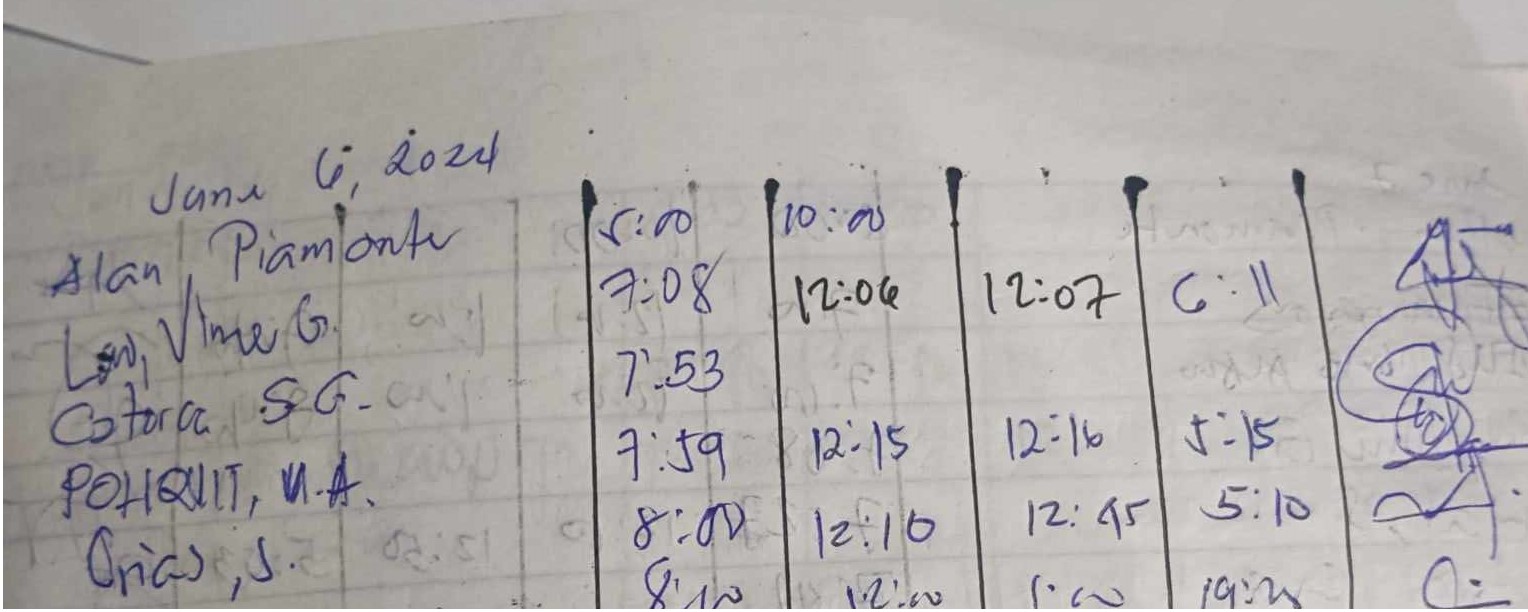 June 6, 2024
Alan, Piamonte 5:00 10:00
G. 7:08 12:06 12:07 6:11
Cotorca S.G. 7:53
POHQUIT, M.A. 7:59 12:15 12:16 5:15
Orias, J. 8:00 12:10 12:45 5:10
8:10 12:00 1:00